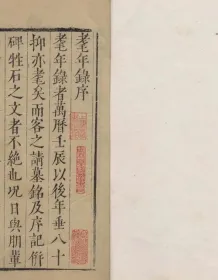 耄年錄序
耄年錄者萬曆壬辰以後年垂八十
抑亦耄矣而客之請墓銘及序記衎
碑牲石之文者不絕也況日與朋輩